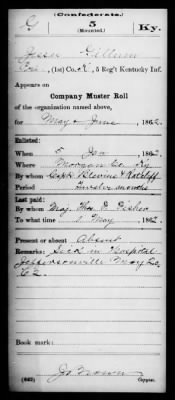 (Confederate.)
5
(Mounted.)
Ky.
(1st) Co. K, 5 Reg't Kentucky Inf.
Appears on
Company Muster Roll
of the organization named above,
for May & June, 1862.
Enlisted:
When 5 Jan, 1862
Where Morgan Co. Ky
By whom Capt.
Period twelve months
Last paid:
By whom Maj. Thos. Fisher
To what time 1 May, 1862
Present or absent Absent
Remarks: Sick in Hospital
Jeffersonville
62.
Book mark:
(642)
Copyist.